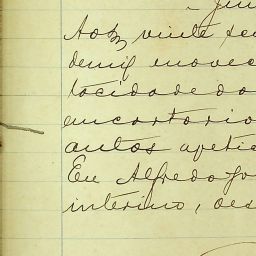 Aos vinte se
demil enovec
tacidade do
emcartorio
autos apetic
Eu Alfredo Go
interino, oes